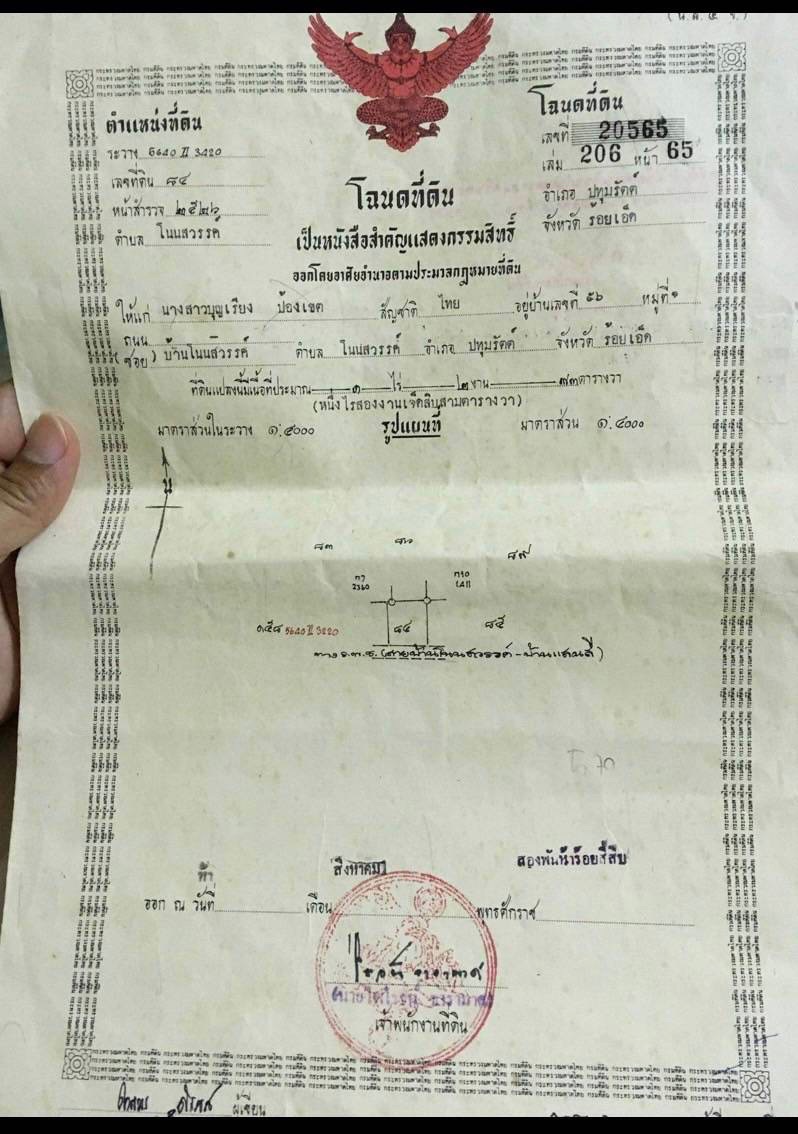 (น.ส.๔ จ.)
ตำแหน่งที่ดิน
ระวาง 5640 II 3420
เลขที่ดิน ๘๔
หน้าสำรวจ ๒๕๒๖
ตำบล โนนสวรรค์
โฉนดที่ดิน
เลขที่ 20565
เล่ม 206 หน้า 65
อำเภอ ปทุมรัตต์
จังหวัด ร้อยเอ็ด
โฉนดที่ดิน
เป็นหนังสือสำคัญแสดงกรรมสิทธิ์
ออกโดยอาศัยอำนาจตามประมวลกฎหมายที่ดิน
ให้แก่ นางสาวบุญเรียง ป้องเขต สัญชาติ ไทย อยู่บ้านเลขที่ ๕๖ หมู่ที่ ๑
ถนน
(ซอย) บ้านโนนสวรรค์ ตำบล โนนสวรรค์ อำเภอ ปทุมรัตต์ จังหวัด ร้อยเอ็ด
ที่ดินแปลงนี้มีเนื้อที่ประมาณ ๑ ไร่ ๒ งาน ๗๓ ตารางวา
(หนึ่งไร่สองงานเจ็ดสิบสามตารางวา)
มาตราส่วนในระวาง ๑:๔๐๐๐ รูปแผนที่ มาตราส่วน ๑:๔๐๐๐
น
๘๓ ๘๖ ๘๗
๑๕๘ 5640 II 3420 ๘๔ ๘๕
ทาง ร.พ.ช. (สายบ้านโนนสวรรค์-บ้านแสนสี)
ห้า สิงหาคม สองพันห้าร้อยสี่สิบ
ออก ณ วันที่ เดือน พุทธศักราช
เจ้าพนักงานที่ดิน
ผู้เขียน